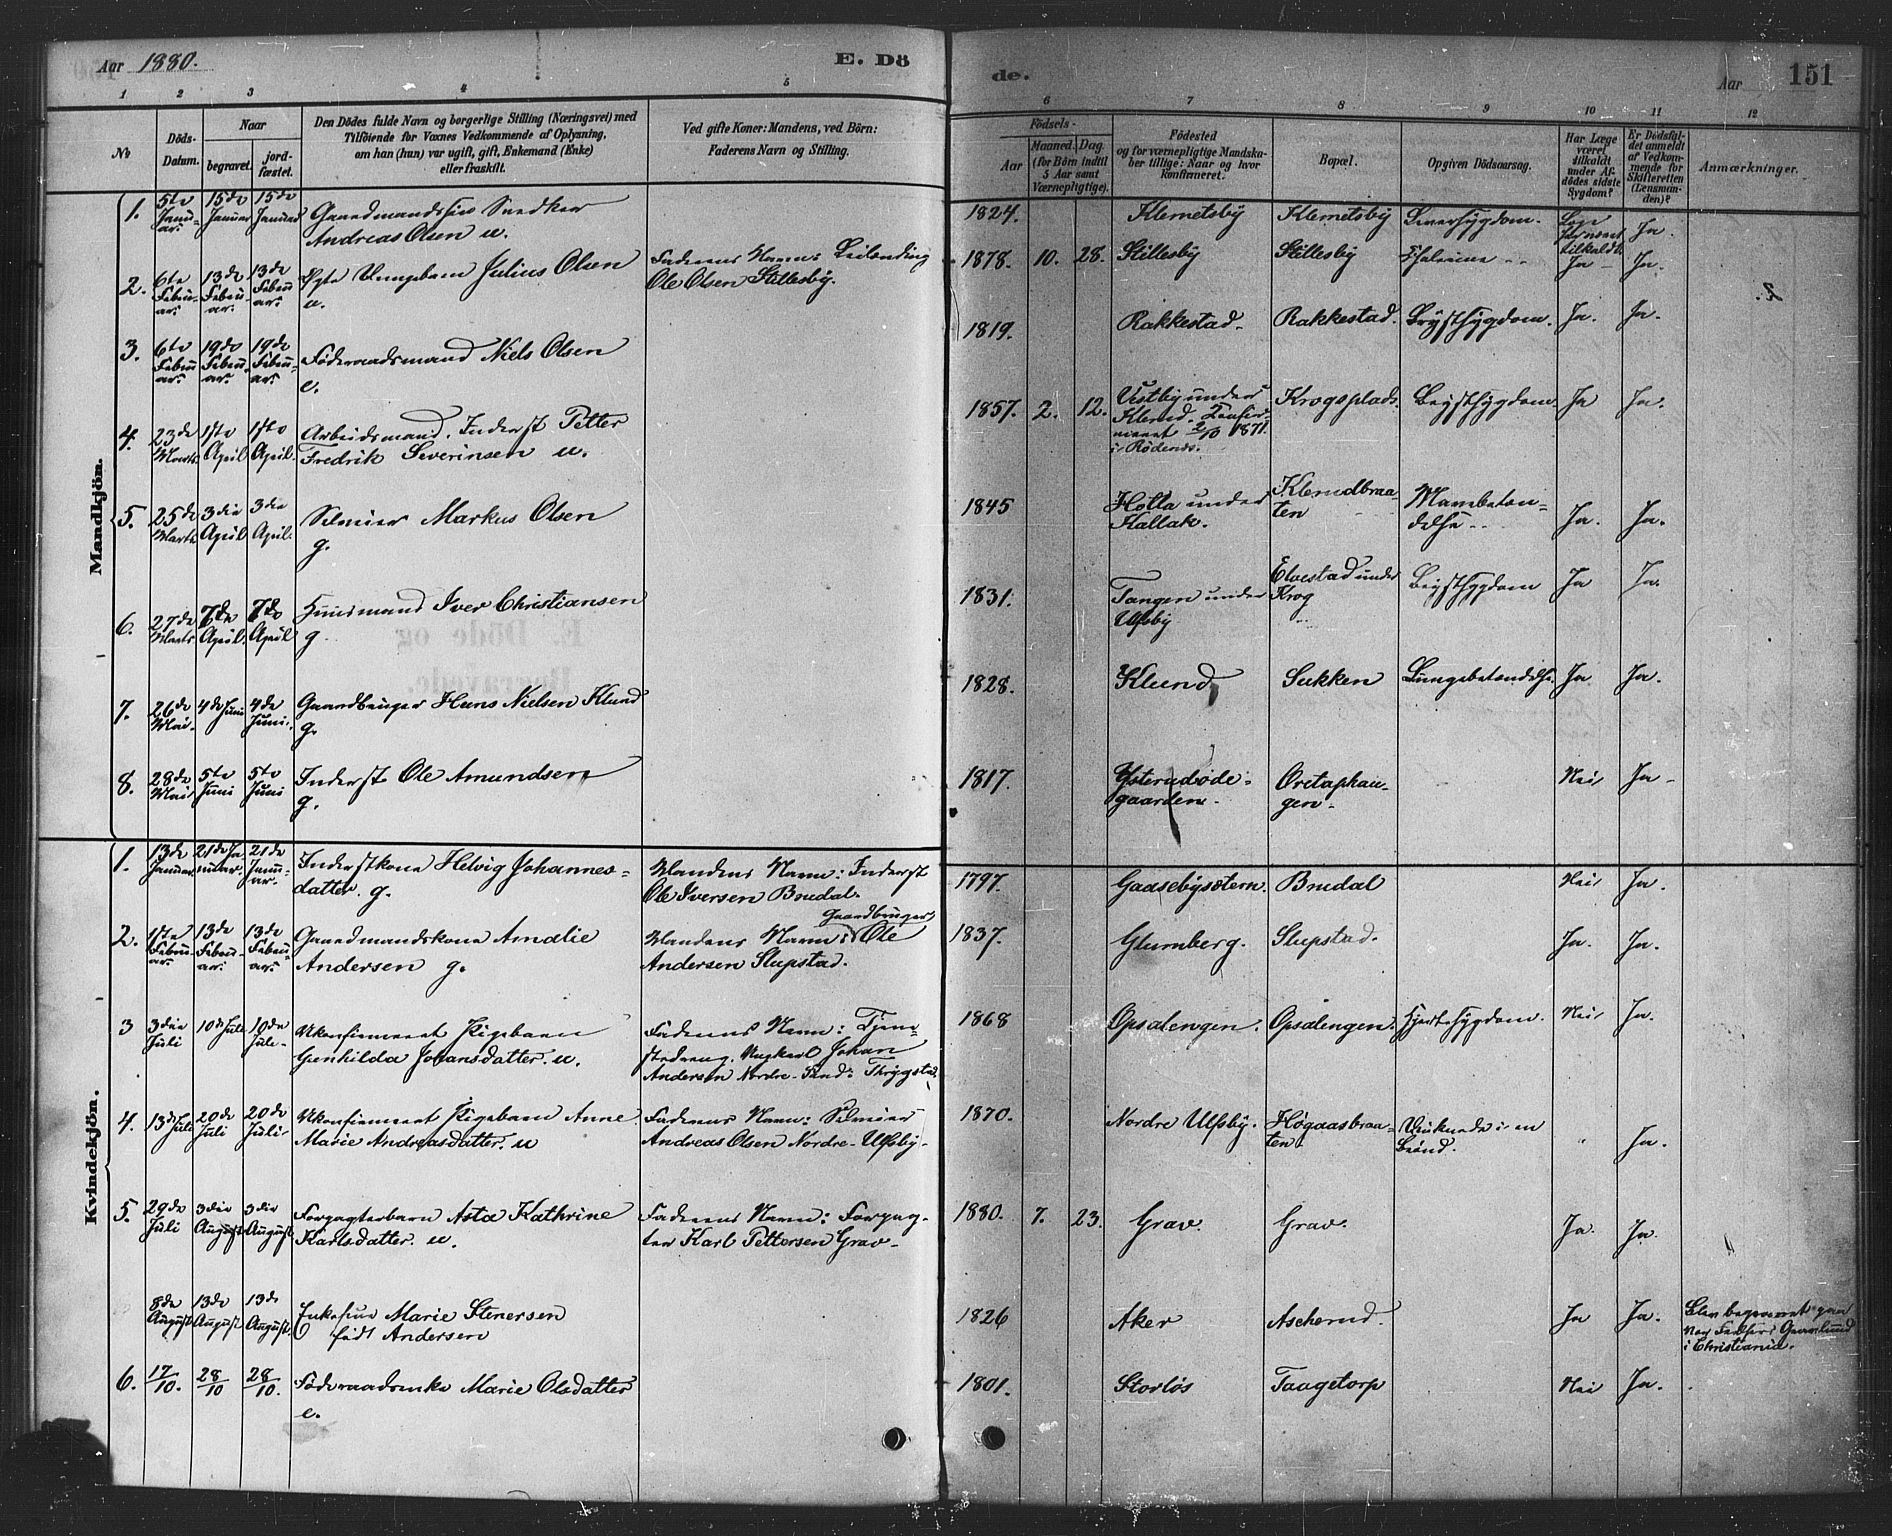 Aar 1880.
E. Dö
de.
Aar
151
1 2 3 4 5
6 7 8 9 10 11 12
No
Döds-
Datum.
Naar
begravet.
jord-
fæstet.
Den Dödes fulde Navn og borgerlige Stilling (Næringsvei) med
Tilföiende for Voxnes Vedkommende af Oplysning,
om han (hun) var ugift, gift, Enkemand (Enke)
eller fraskilt.
Ved gifte Koner: Mandens, ved Börn:
Faderens Navn og Stilling.
Födsels-
Aar
Maaned. Dag.
(for Börn indtil
5 Aar samt
Værnepligtige).
Födested
og for værnepligtige Mandska-
ber tillige: Naar og hvor
konfirmeret.
Bopæl.
Opgiven Dödsaarsag.
Har Læge
været
tilkaldt
under Af-
dödes sidste
Sygdom?
Er Dödsfal-
det anmeldt
af Vedkom-
mende for
Skifteretten
(Lensman-
den)?
Anmærkninger.
Mandkjön.
1. 5te Januar 15de Januar 15de Januar Gaardmandssøn Snedker
Andreas Olsen u.
1824. Klemetsby Klemetsby Leversygdom. Ja.
2. 6te Februar 13de Februar 13de Februar Ægte Drengebarn Julius Olsen
u.
Faderens Navn: Leilending
Ole Olsen Stillesby.
1878. 10. 28. Stillesby Stillesby Ja Ja.
3. 6te Februar 19de Februar 19de Februar Föderaadsmand Niels Olsen
e.
1819. Rakkestad. Rakkestad. Brystsygdom. Ja. Ja.
4. 23de Marts 1ste April 1ste April Arbeidsmand. Inderst Petter
Fredrik Severinsen u.
1857. 2. 12. Vestby under
Klerud. Konfir-
meret 2/10 1871.
i Rödenes.
Krogsplads. Brystsygdom Ja Ja.
5. 25de Marts 3die April 3die April Selveier Markus Olsen
g.
1845 Holla under
Kallak.
Klerudbraa-
ten
Mavebetæn-
delse Ja. Ja.
6. 27de Marts 7de April 7de April Huusmand Iver Christiansen
g.
1831. Tangen under
Ulfsby
Elvestad under
Krog
Brystsygdom Ja Ja.
7. 26de Mai 4de Juni 4de Juni. Gaardbruger Hans Nielsen Klund
g.
1828. Klund Sukken Lungebetændelse. Ja Ja.
8. 28de Mai 5te Juni 5te Juni Inderst Ole Amundsen
g.
1817. Ysterudøde-
gaarden.
Oretaphau-
gen.
Nei Ja
Kvindekjön.
1. 13de Januar 21de Januar. 21de Januar. Inderstkone Helvig Johannes-
datter. g.
Mandens Navn: Inderst
Ole Iversen Brudal.
1797. Gaasebysætern. Brudal Nei Ja.
2. 1ste Februar. 13de Februar. 13de Februar. Gaardmandskone Amalie
Andersen g.
Gaardbruger
Mandens Navn: Ole
Andersen Slupstad.
1837. Glumberg. Slupstad. Ja. Ja.
3 3die Juli 10de Juli 10de Juli Ukonfirmeret Pigebarn
Gunhilda Johansdatter. u.
Faderens Navn: Tjene-
stedreng, Ungkarl Johan
Andersen Nordre-Sand: Thrygstad.
1868 Opsalengen. Opsalengen. Hjertesygdom. Nei Ja.
4. 13de Juli 20de Juli 20de Juli Ukonfirmeret Pigebarn Anne
Marie Andreasdatter. u
Faderens Navn: Selveier
Andreas Olsen Nordre-Ulfsby.
1870. Nordre Ulfsby. Høgaasbraa-
ten
Druknede i en
Brønd.
" Ja.
5. 29de Juli 3die August 3die August Forpagterbarn Asta Kathrine
Karlsdatter. u.
Faderens Navn: Forpag-
ter Karl Pettersen Grav.
1880. 7. 23. Grav. Grav. Ja. Ja.
8de August 13de August 13de August. Enkefrue Marie Stenersen
født Andersen
1826 Aker Ascherud. Ja Ja. Blev begravet paa
Vor Frelsers Gravlund
i Christiania.
6. 17/10. 28/10 28/10. Föderaadsenke Marie Olsdatter
e.
1801. Storløs Taagetorp Nei Ja.